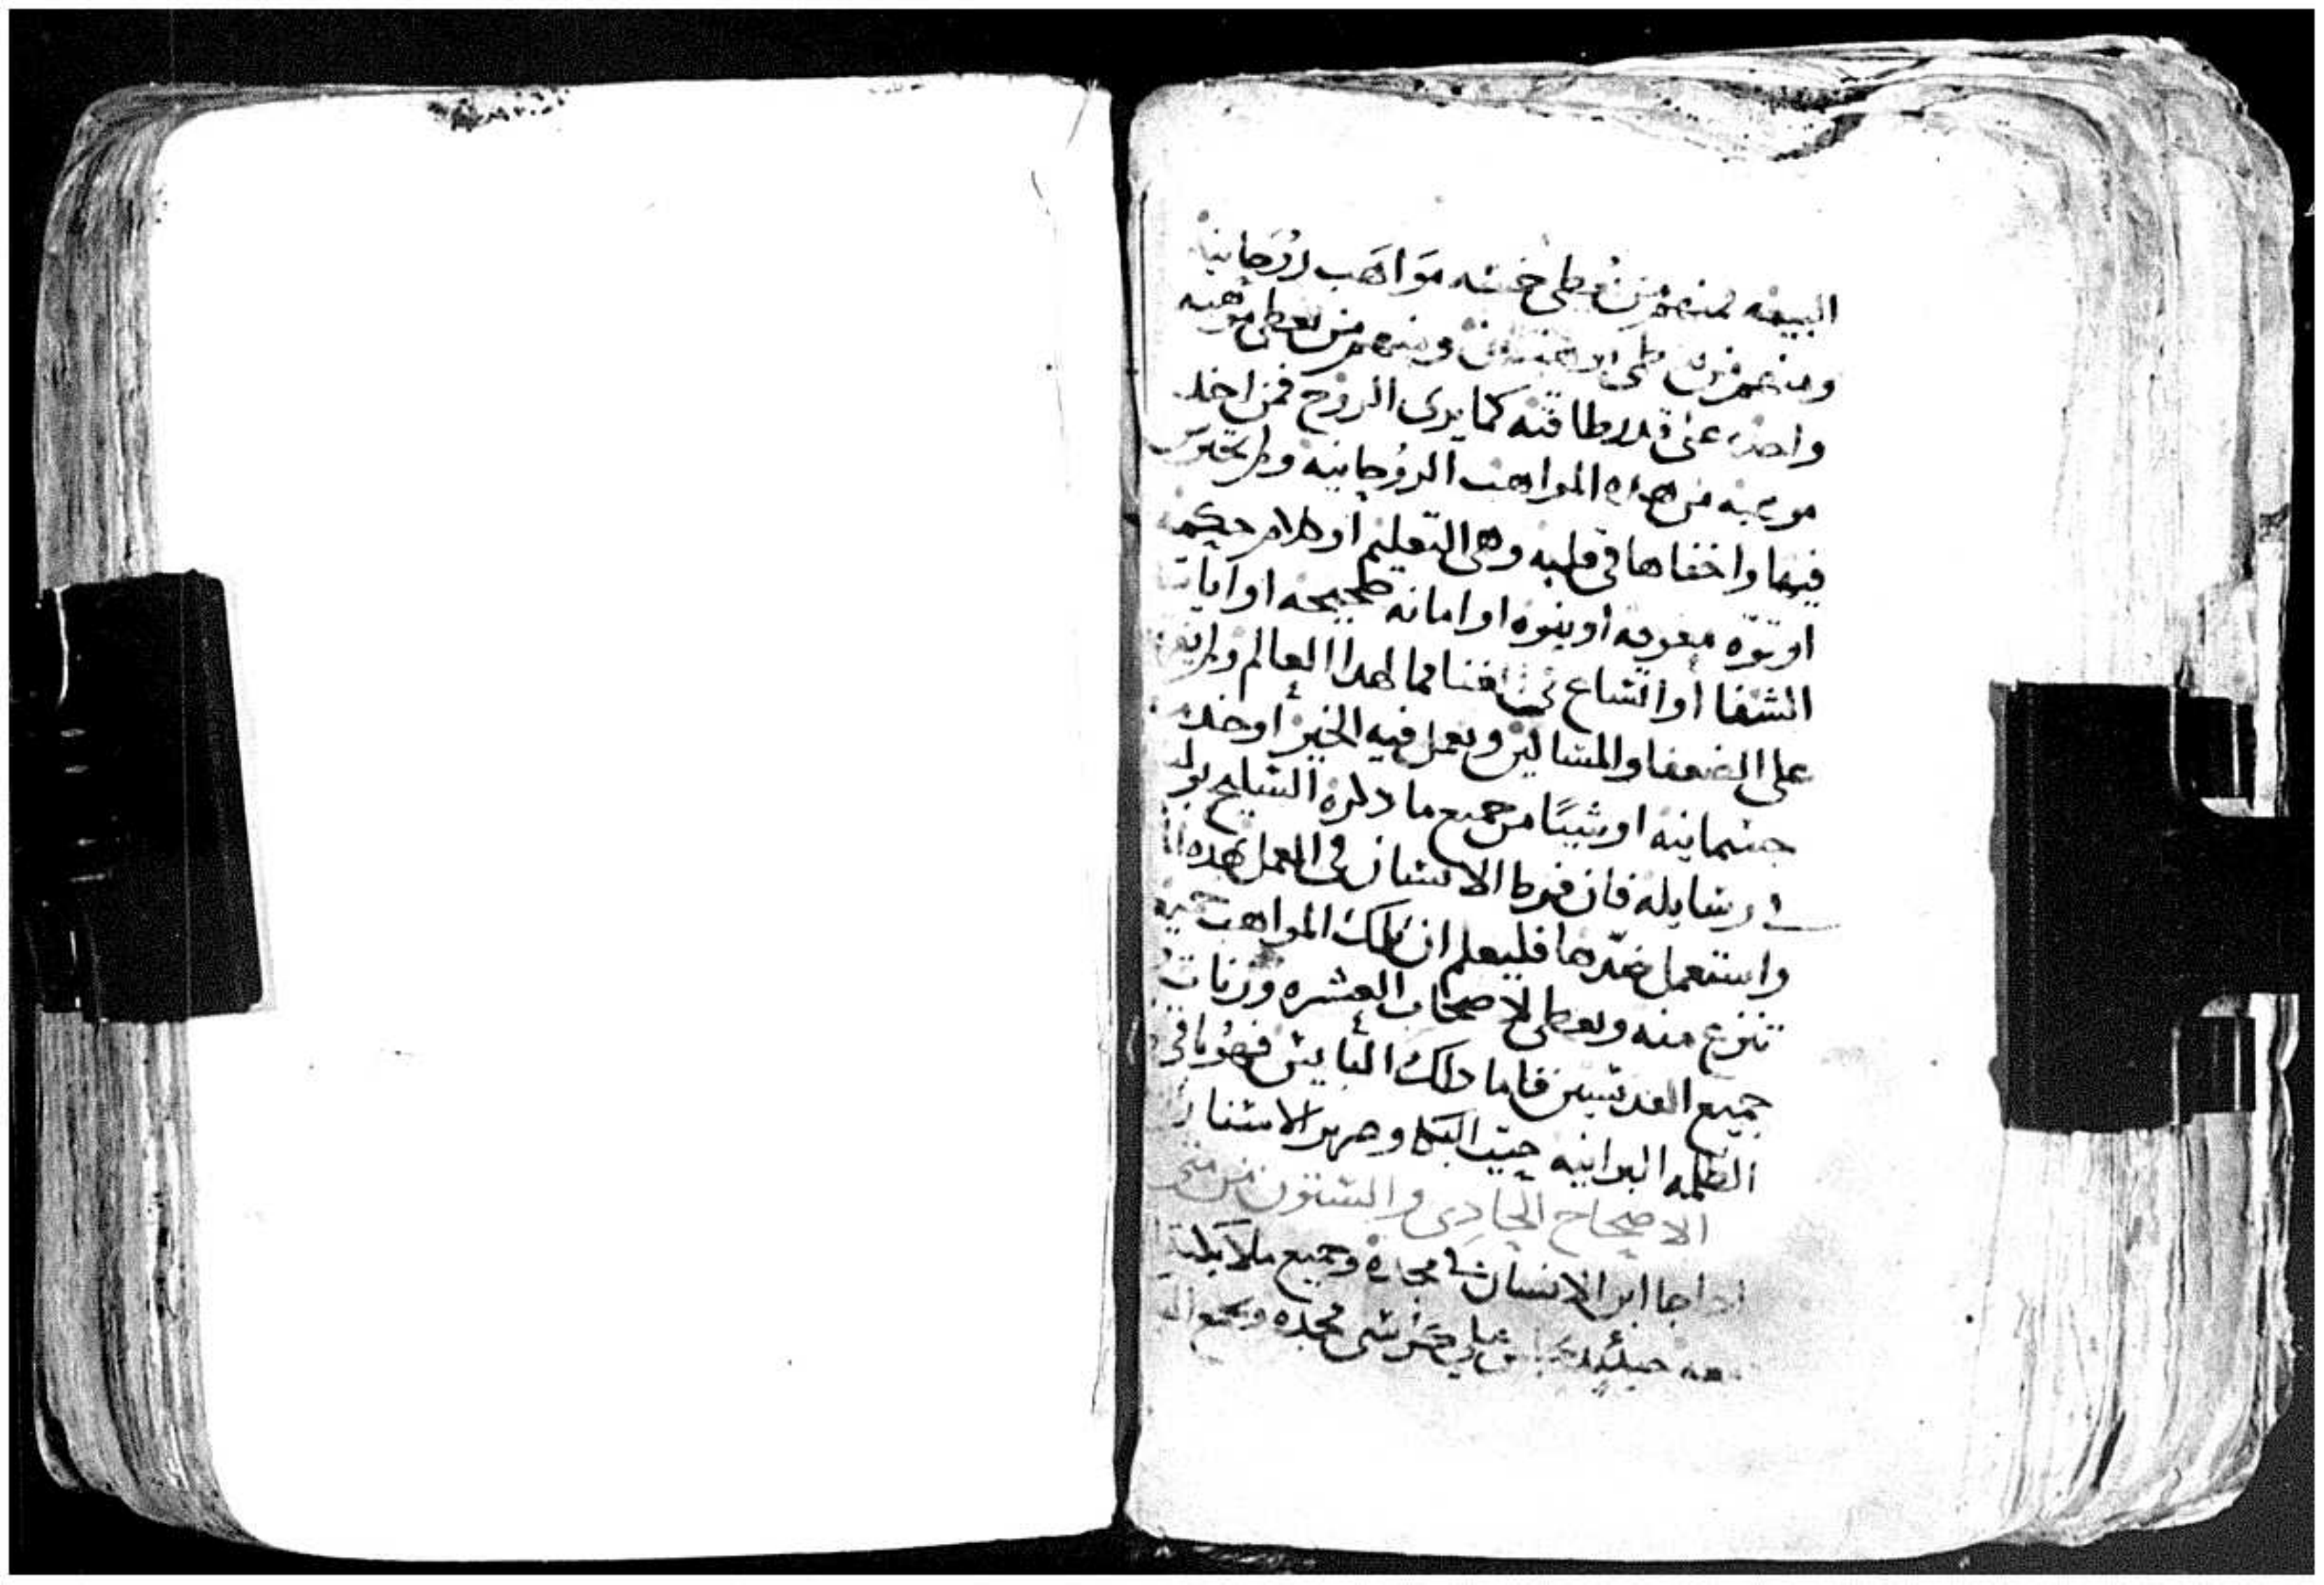 البيعه فمنهم من يعطى خمسه مواهب روحانيه
ومنهم من يعطى اتنتين ومنهم من يعطى موهبه
واحده على قدر طاقته كما يرى الروح فمن اخد
موهبه من هده المواهب الروحانيه ولم يتجر
فيها واخفاها في قلبه وهى التعليم او كلام حكمه
او قوه معرفه او نبوه او امانه صحيحه او ايات
الشفا أو اتساع في العالم ولم
على الضعفا والمساكين ويعمل فيه الخير أو خدمه
جسمانيه او شيئا من جميع ما دكره السليح بولس
في رسايله فان فرط الانسان في العمل بهده
واستعمل ضدها فليعلم ان تلك المواهب
تنزع منه ويعطى لاصحاب العشره وزنات
جميع القديسين فاما دلك البايس فهو باقي
الظلمه البرانيه حيت البكا وصرير الاسنان
الاصحاح الحادى والستون من متى
ادا جا ابن الانسان في مجده وجميع ملايكته
معه حينيد يجلس على كرسى مجده